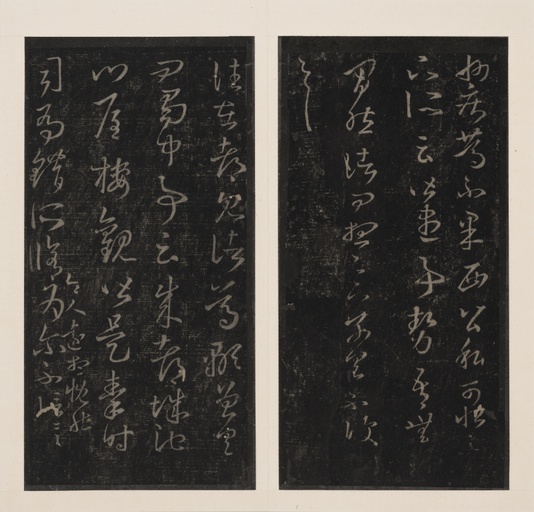 州疾篤不果西公私可恨
足下所云皆盡事勢吾無
間然諸問想足下別具不復
一一
往在都見諸葛顒曾具
問蜀中事云成都城池
門屋樓觀皆是秦時
司馬錯所脩令人遠想慨然為爾不信一一